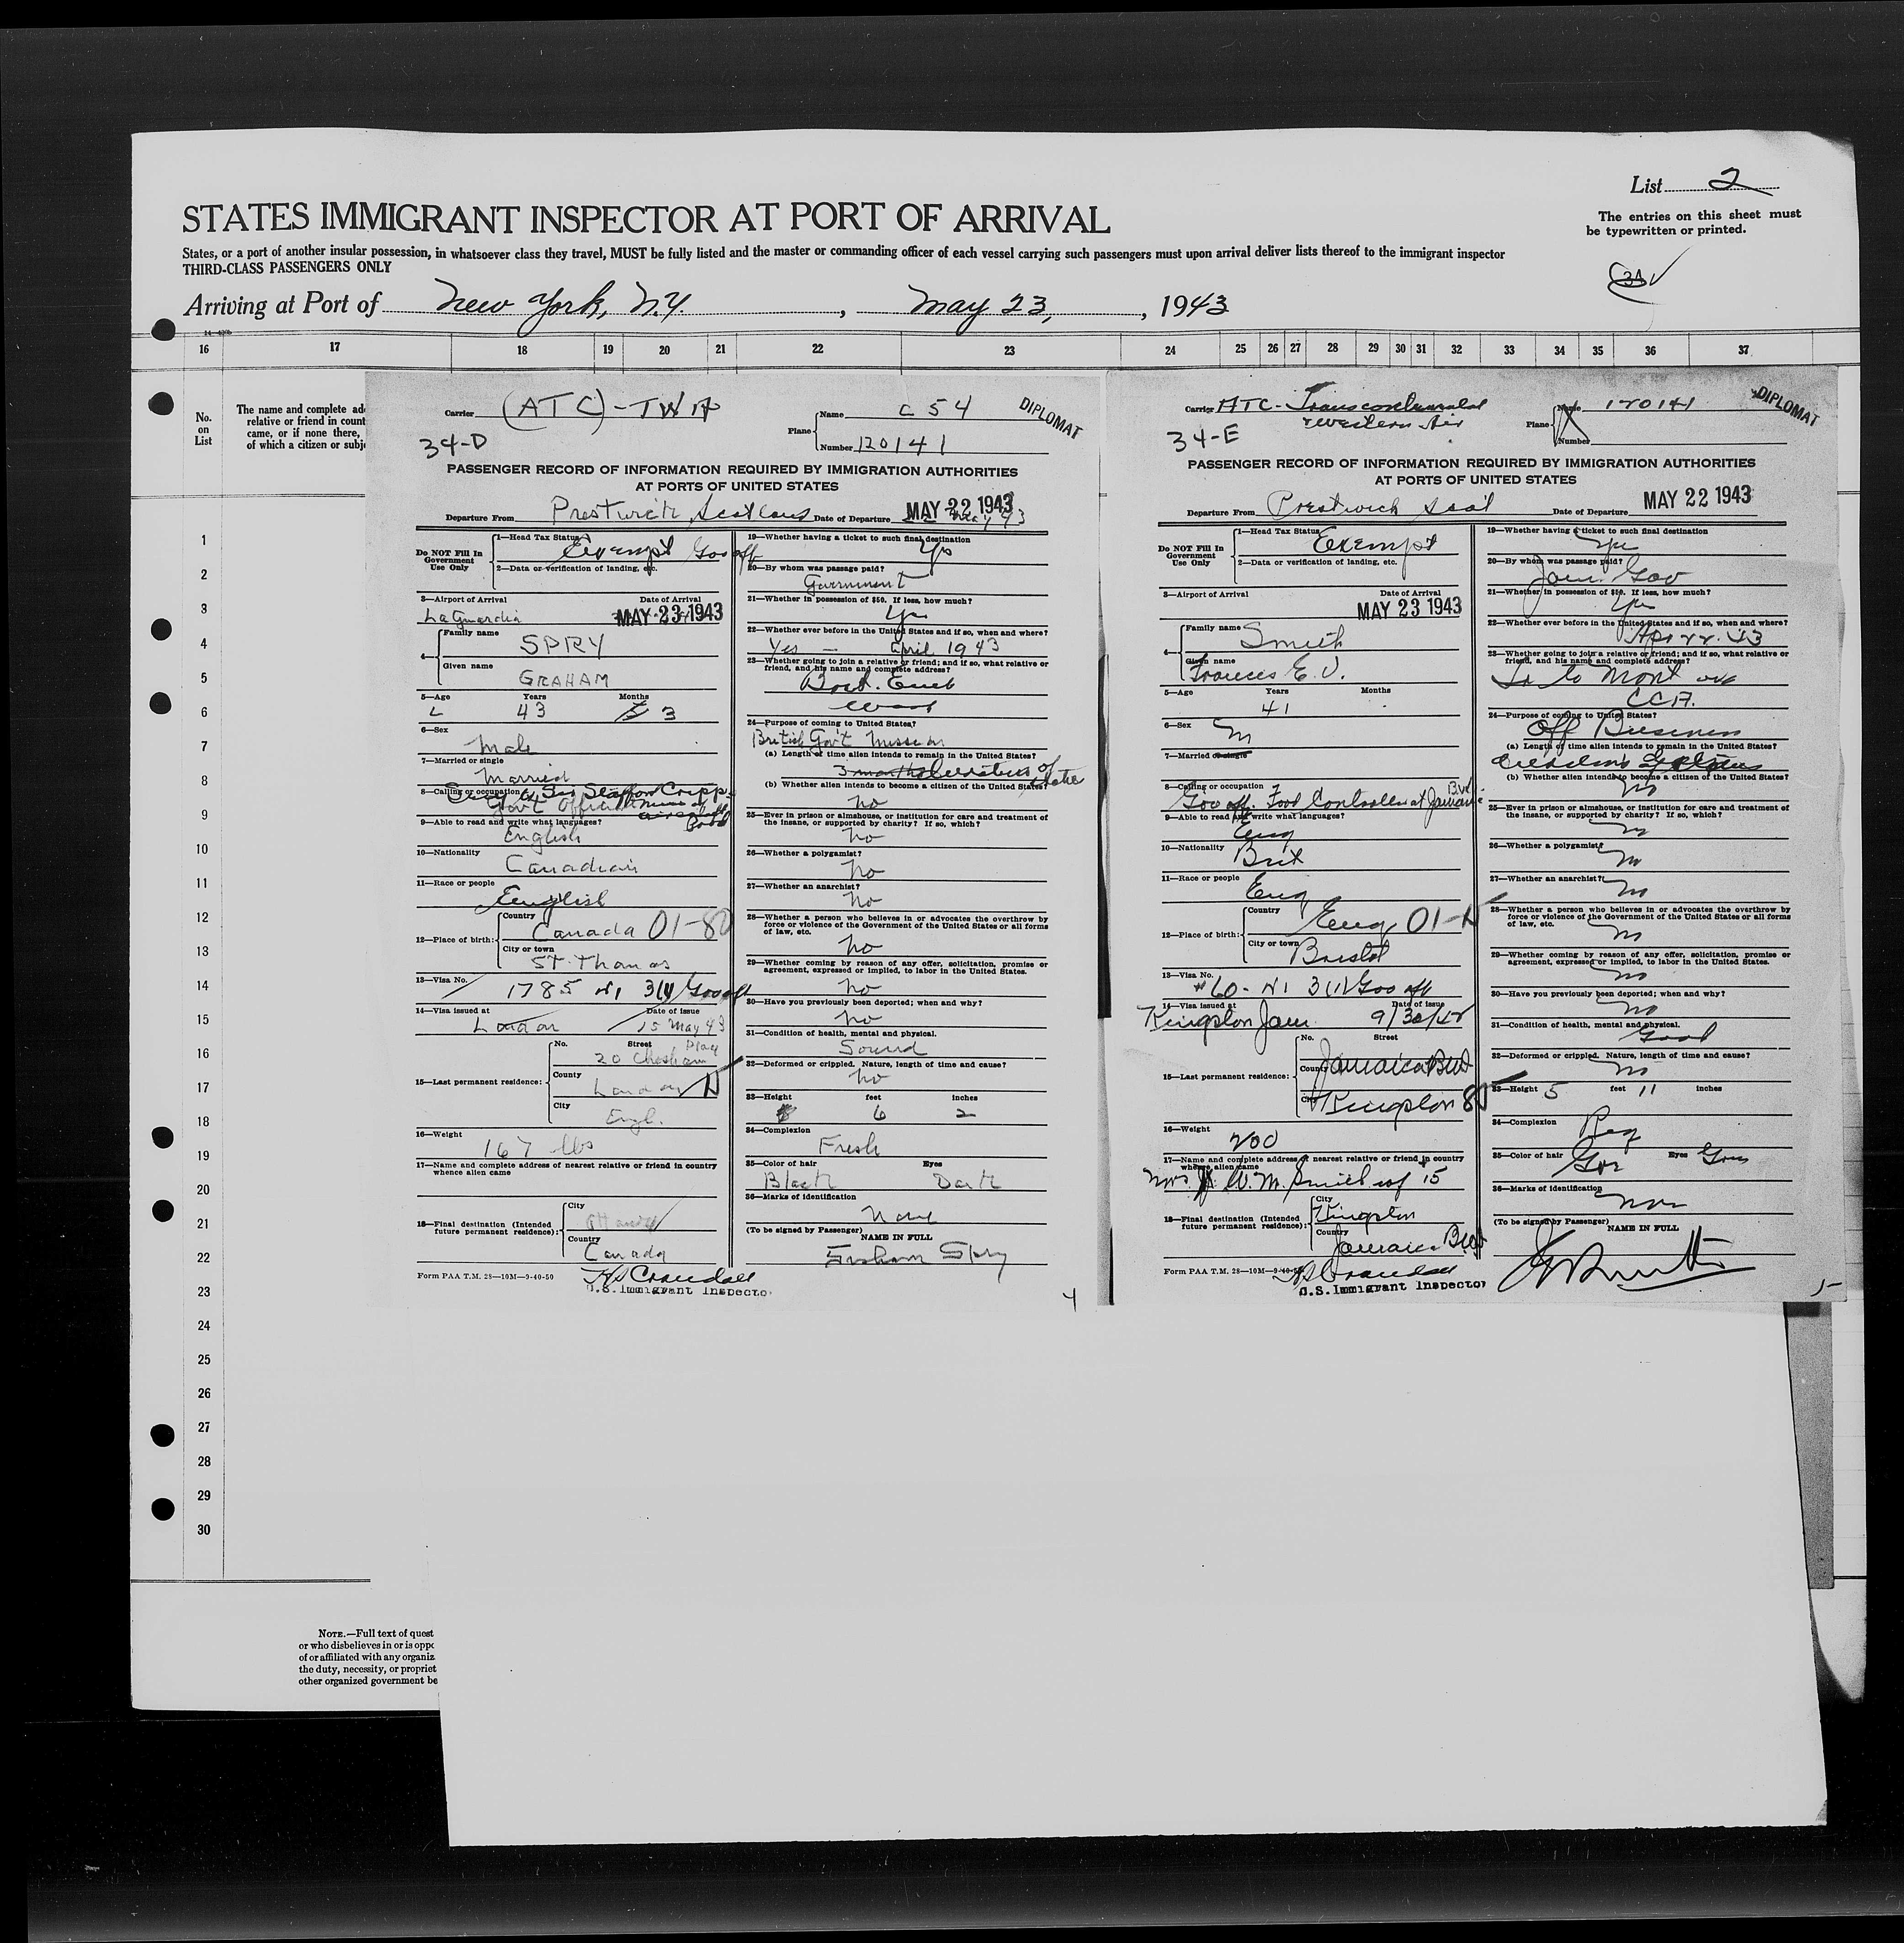 List 2
STATES IMMIGRANT INSPECTOR AT PORT OF ARRIVAL
The entries on this sheet must
be typewritten or printed.
States, or a port of another insular possession, in whatsoever class they travel, MUST be fully listed and the master or commanding officer of each vessel carrying such passengers must upon arrival deliver lists thereof to the immigrant inspector
THIRD-CLASS PASSENGERS ONLY
Arriving at Port of New York, N.Y. , May 23, , 1943
16 17 18 19 20 21 22 23 24 25 26 27 28 29 30 31 32 33 34 35 36 37
No.
on
List
The name and complete ad
relative or friend in count
came, or if none there,
of which a citizen or subj
1
2
3
4
5
6
7
8
9
10
11
12
13
14
15
16
17
18
19
20
21
22
23
24
25
26
27
28
29
30
NOTE.—Full text of quest
or who disbelieves in or is oppo
of or affiliated with any organiz
the duty, necessity, or propriet
other organized government be
Carrier (ATC) - TWA
Plane Name C 54
Number 120141
DIPLOMAT
34-D
PASSENGER RECORD OF INFORMATION REQUIRED BY IMMIGRATION AUTHORITIES
AT PORTS OF UNITED STATES
Departure From Prestwick, Scotland Date of Departure MAY 22 1943
Do NOT Fill In
Government
Use Only
1—Head Tax Status Exempt Gov off
2—Data or verification of landing, etc.
3—Airport of Arrival Date of Arrival
LaGuardia MAY 23 1943
4— Family name SPRY
Given name GRAHAM
5—Age Years Months
43 3
6—Sex
Male
7—Married or single
Married
8—Calling or occupation Secy to Sir Stafford Cripps
Gov't Official
9—Able to read and write what languages?
English
10—Nationality
Canadian
11—Race or people
English
12—Place of birth: Country Canada 01-80
City or town
St. Thomas
13—Visa No.
1785 3(1) Gov off
14—Visa issued at Date of issue
London 15 May 43
15—Last permanent residence: No. Street
20 Chesham Place
County
London
City
Engl.
16—Weight
167 lbs
17—Name and complete address of nearest relative or friend in country
whence alien came
18—Final destination (Intended
future permanent residence): City
Ottawa
Country
Canada
Form PAA T.M. 28—10M—9-40-50
HS Crandall
U.S. Immigrant Inspector
19—Whether having a ticket to such final destination
Yes
20—By whom was passage paid?
Government
21—Whether in possession of $50. If less, how much?
Yes
22—Whether ever before in the United States and if so, when and where?
Yes — April 1943
23—Whether going to join a relative or friend; and if so, what relative or
friend, and his name and complete address?
24—Purpose of coming to United States?
British Gov't Mission
(a) Length of time alien intends to remain in the United States?
3 months
(b) Whether alien intends to become a citizen of the United States?
No
25—Ever in prison or almshouse, or institution for care and treatment of
the insane, or supported by charity? If so, which?
No
26—Whether a polygamist?
No
27—Whether an anarchist?
No
28—Whether a person who believes in or advocates the overthrow by
force or violence of the Government of the United States or all forms
of law, etc.
No
29—Whether coming by reason of any offer, solicitation, promise or
agreement, expressed or implied, to labor in the United States.
No
30—Have you previously been deported; when and why?
No
31—Condition of health, mental and physical.
Sound
32—Deformed or crippled. Nature, length of time and cause?
No
33—Height feet inches
6 2
34—Complexion
Fresh
35—Color of hair Eyes
Black Dark
36—Marks of identification
None
(To be signed by Passenger)
NAME IN FULL
Graham Spry
4
Carrier ATC - Transcontinental
& Western Air
Plane Name 120141
Number
DIPLOMAT
34-E
PASSENGER RECORD OF INFORMATION REQUIRED BY IMMIGRATION AUTHORITIES
AT PORTS OF UNITED STATES
Departure From Prestwick Scot Date of Departure MAY 22 1943
Do NOT Fill In
Government
Use Only
1—Head Tax Status Exempt
2—Data or verification of landing, etc.
3—Airport of Arrival Date of Arrival
MAY 23 1943
4— Family name Smith
Given name
Frances E.V.
5—Age Years Months
41
6—Sex M
7—Married or single
8—Calling or occupation
Gov off. Food Controller at Jamaica
9—Able to read and write what languages?
Eng
10—Nationality
Brit
11—Race or people
Eng
12—Place of birth: Country
Eng 01-
City or town
Bristol
13—Visa No.
#60 - 3(1) Gov off
14—Visa issued at Date of issue
Kingston Jam. 9/30/42
15—Last permanent residence: No. Street
County Jamaica BWI
City Kingston
16—Weight
200
17—Name and complete address of nearest relative or friend in country
whence alien came
18—Final destination (Intended
future permanent residence): City
Kingston
Country
Jamaica BWI
Form PAA T.M. 28—10M—9-40-50
HS Crandall
U.S. Immigrant Inspector
19—Whether having a ticket to such final destination
Yes
20—By whom was passage paid?
Jam. Gov
21—Whether in possession of $50. If less, how much?
Yes
22—Whether ever before in the United States and if so, when and where?
23—Whether going to join a relative or friend; and if so, what relative or
friend, and his name and complete address?
24—Purpose of coming to United States?
Off Business
(a) Length of time alien intends to remain in the United States?
(b) Whether alien intends to become a citizen of the United States?
No
25—Ever in prison or almshouse, or institution for care and treatment of
the insane, or supported by charity? If so, which?
No
26—Whether a polygamist?
No
27—Whether an anarchist?
No
28—Whether a person who believes in or advocates the overthrow by
force or violence of the Government of the United States or all forms
of law, etc.
No
29—Whether coming by reason of any offer, solicitation, promise or
agreement, expressed or implied, to labor in the United States.
No
30—Have you previously been deported; when and why?
No
31—Condition of health, mental and physical.
Good
32—Deformed or crippled. Nature, length of time and cause?
No
33—Height 5 feet 11 inches
34—Complexion
35—Color of hair Eyes
36—Marks of identification
(To be signed by Passenger)
NAME IN FULL